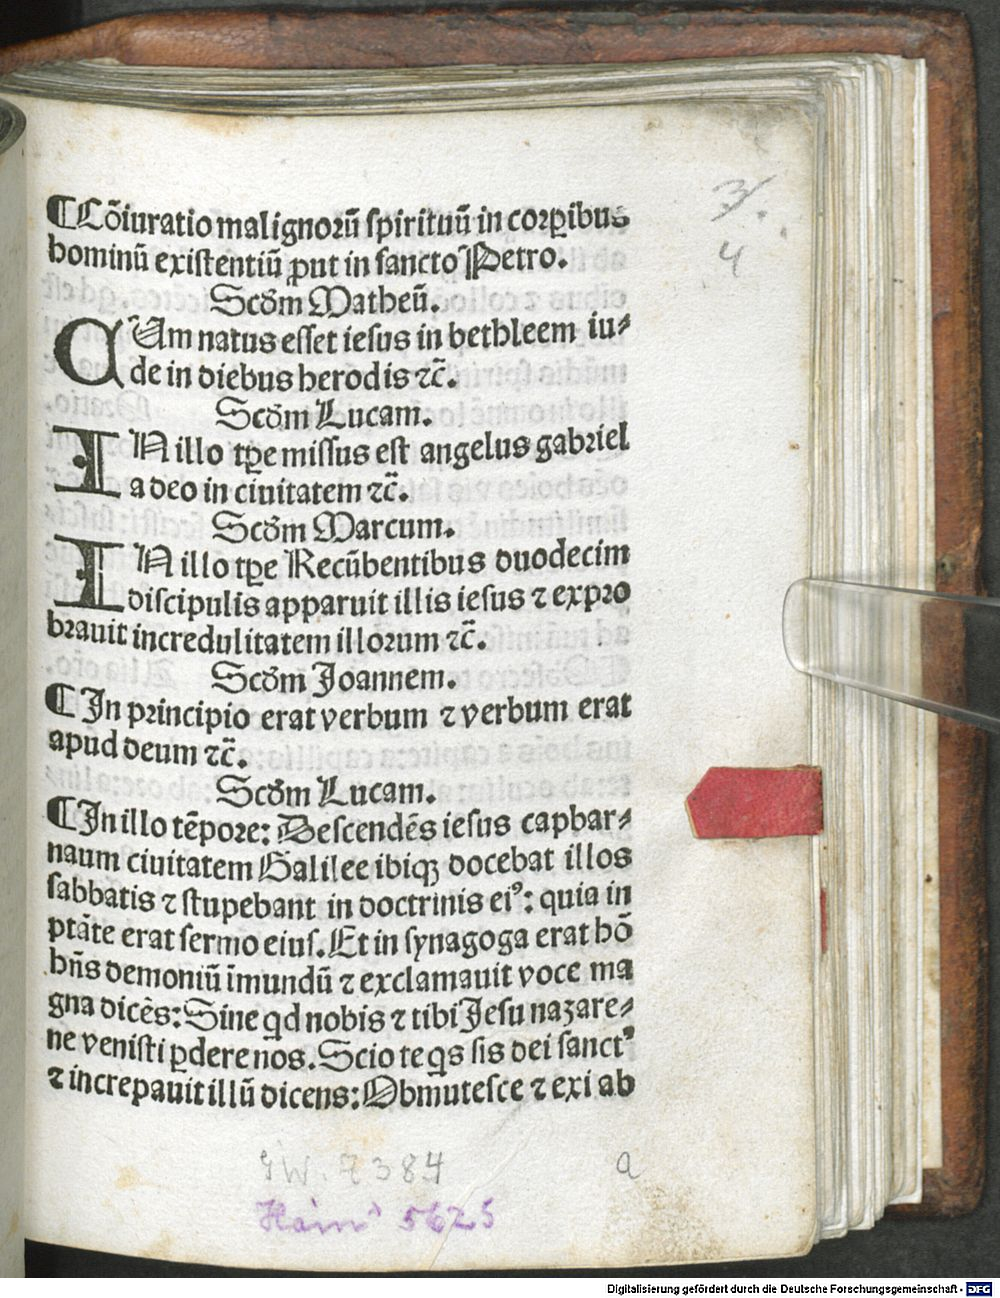 3.
4
¶ Cõiuratio malignorũ spirituũ in corꝑibus
hominũ existentiũ ꝓut in sancto Petro.
Scḋm Matheũ.
CUm natus esset iesus in bethleem iu⸗
de in diebus herodis ⁊c̃.
Scḋm Lucam.
IN illo tꝑe missus est angelus gabriel
a deo in ciuitatem ⁊c̃.
Scḋm Marcum.
IN illo tꝑe Recũbentibus duodecim
discipulis apparuit illis iesus ⁊ expro
brauit incredulitatem illorum ⁊c̃.
Scḋm Joannem.
¶ In principio erat verbum ⁊ verbum erat
apud deum ⁊c̃.
Scḋm Lucam.
¶ In illo tẽpore: Descendẽs iesus caphar⸗
naum ciuitatem Galilee ibiqꝫ docebat illos
sabbatis ⁊ stupebant in doctrinis eiꝰ: quia in
ptãte erat sermo eius. Et in synagoga erat hõ
hñs demoniũ ĩmundũ ⁊ exclamauit voce ma
gna dicẽs: Sine qd nobis ⁊ tibi Jesu nazare⸗
ne venisti ꝑdere nos. Scio te qs sis dei sanctꝰ
⁊ increpauit illũ dicens: Obmutesce ⁊ exi ab
GW. 7384
a
Hain 5625
Digitalisierung gefördert durch die Deutsche Forschungsgemeinschaft - DFG